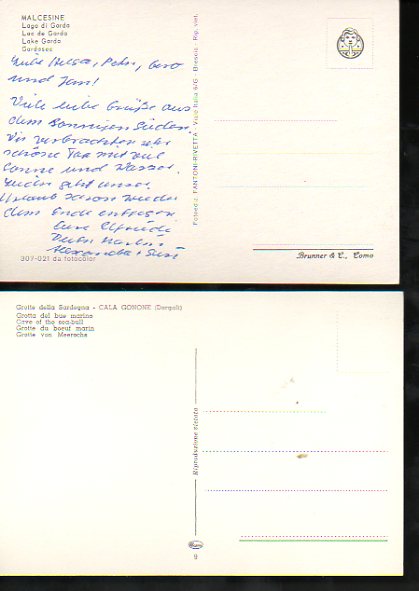 MALCESINE
Lago di Garda
Lac de Garda
Lake Garda
Gardasee
Liebe Helga, Petra,
und Jens!
Viele liebe Grüße aus
dem sonnigen Süden.
Wir verbrachten sehr
schöne Tage mit viel
Sonne und Wasser.
Leider geht unser
Urlaub schon wieder
dem Ende entgegen
Eure Elfriede
Alexandra + Susi
307-021 da fotocolor
Fotoed.s FANTONI-RIVETTA - Brescia - Rip. viet.
Brunner & C., Como
Grotte della Sardegna - CALA GONONE (Dorgali)
Grotta del bue marino
Cave of the sea-bull
Grotte du boeuf marin
Grotte von Meerochs
Riproduzione vietata
9